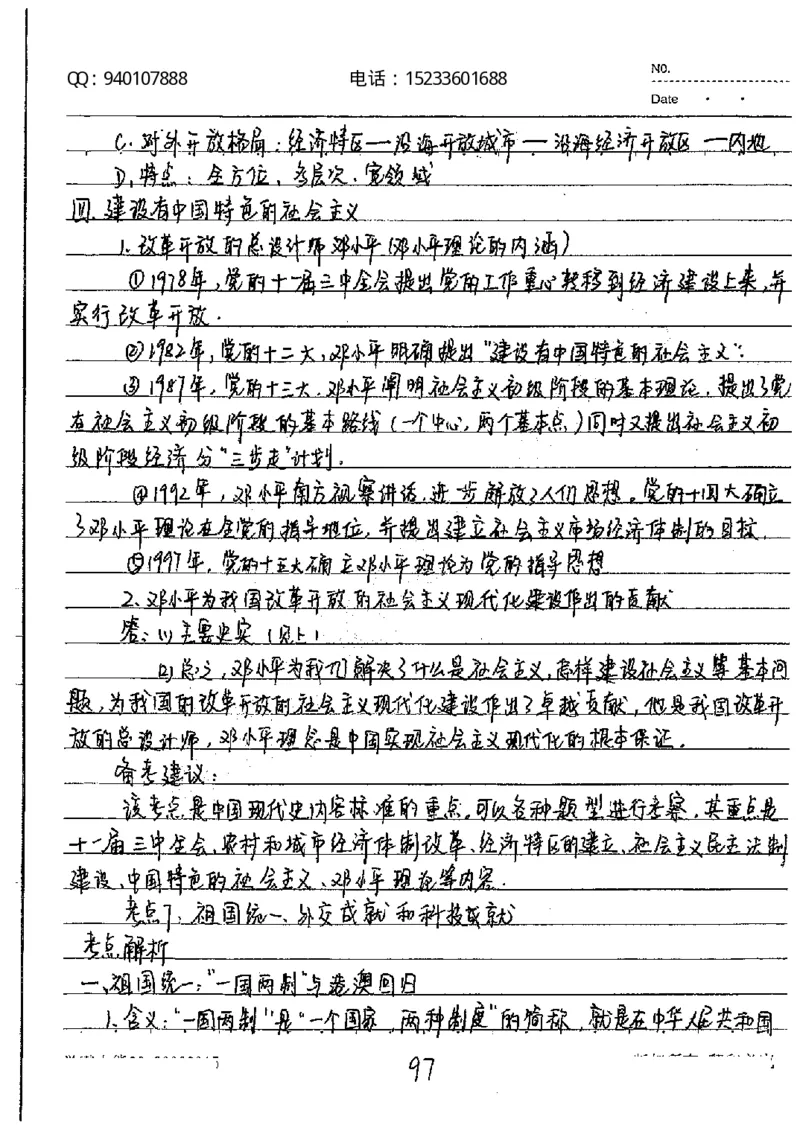 QQ：940107888 电话：15233601688 NO.
Date
C. 对外开放格局：经济特区—沿海开放城市—沿海经济开放区—内地
D. 特点：全方位、多层次、宽领域
四. 建设有中国特色的社会主义
1. 改革开放的总设计师邓小平（邓小平理论的内涵）
①1978年，党的十一届三中全会提出党的工作重心转移到经济建设上来，并
实行改革开放.
②1982年，党的十二大，邓小平明确提出“建设有中国特色的社会主义”.
③1987年，党的十三大，邓小平阐明社会主义初级阶段的基本理论，提出了党
在社会主义初级阶段的基本路线（一个中心，两个基本点）同时又提出社会主义初
级阶段经济分“三步走”计划.
④1992年，邓小平南方视察讲话，进步解放了人们思想。党的十四大确立
了邓小平理论在全党的指导地位，并提出建立社会主义市场经济体制的目标.
⑤1997年，党的十五大确立邓小平理论为党的指导思想
2. 邓小平为我国改革开放的社会主义现代化建设作出的贡献
答：(1) 主要史实（见上）
(2) 总之，邓小平为我们解决了什么是社会主义，怎样建设社会主义等基本问
题，为我国的改革开放的社会主义现代化建设作出了卓越贡献，他是我国改革开
放的总设计师，邓小平理论是中国实现社会主义现代化的根本保证.
备考建议：
该考点是中国现代史内容标准的重点，可以各种题型进行考察，其重点是
十一届三中全会、农村和城市经济体制改革、经济特区的建立、社会主义民主法制
建设、中国特色的社会主义、邓小平理论等内容.
考点7、祖国统一、外交成就和科技成就
考点解析
一、祖国统一：“一国两制”与港澳回归
1. 含义：“一国两制”是“一个国家，两种制度”的简称，就是在中华人民共和国
97